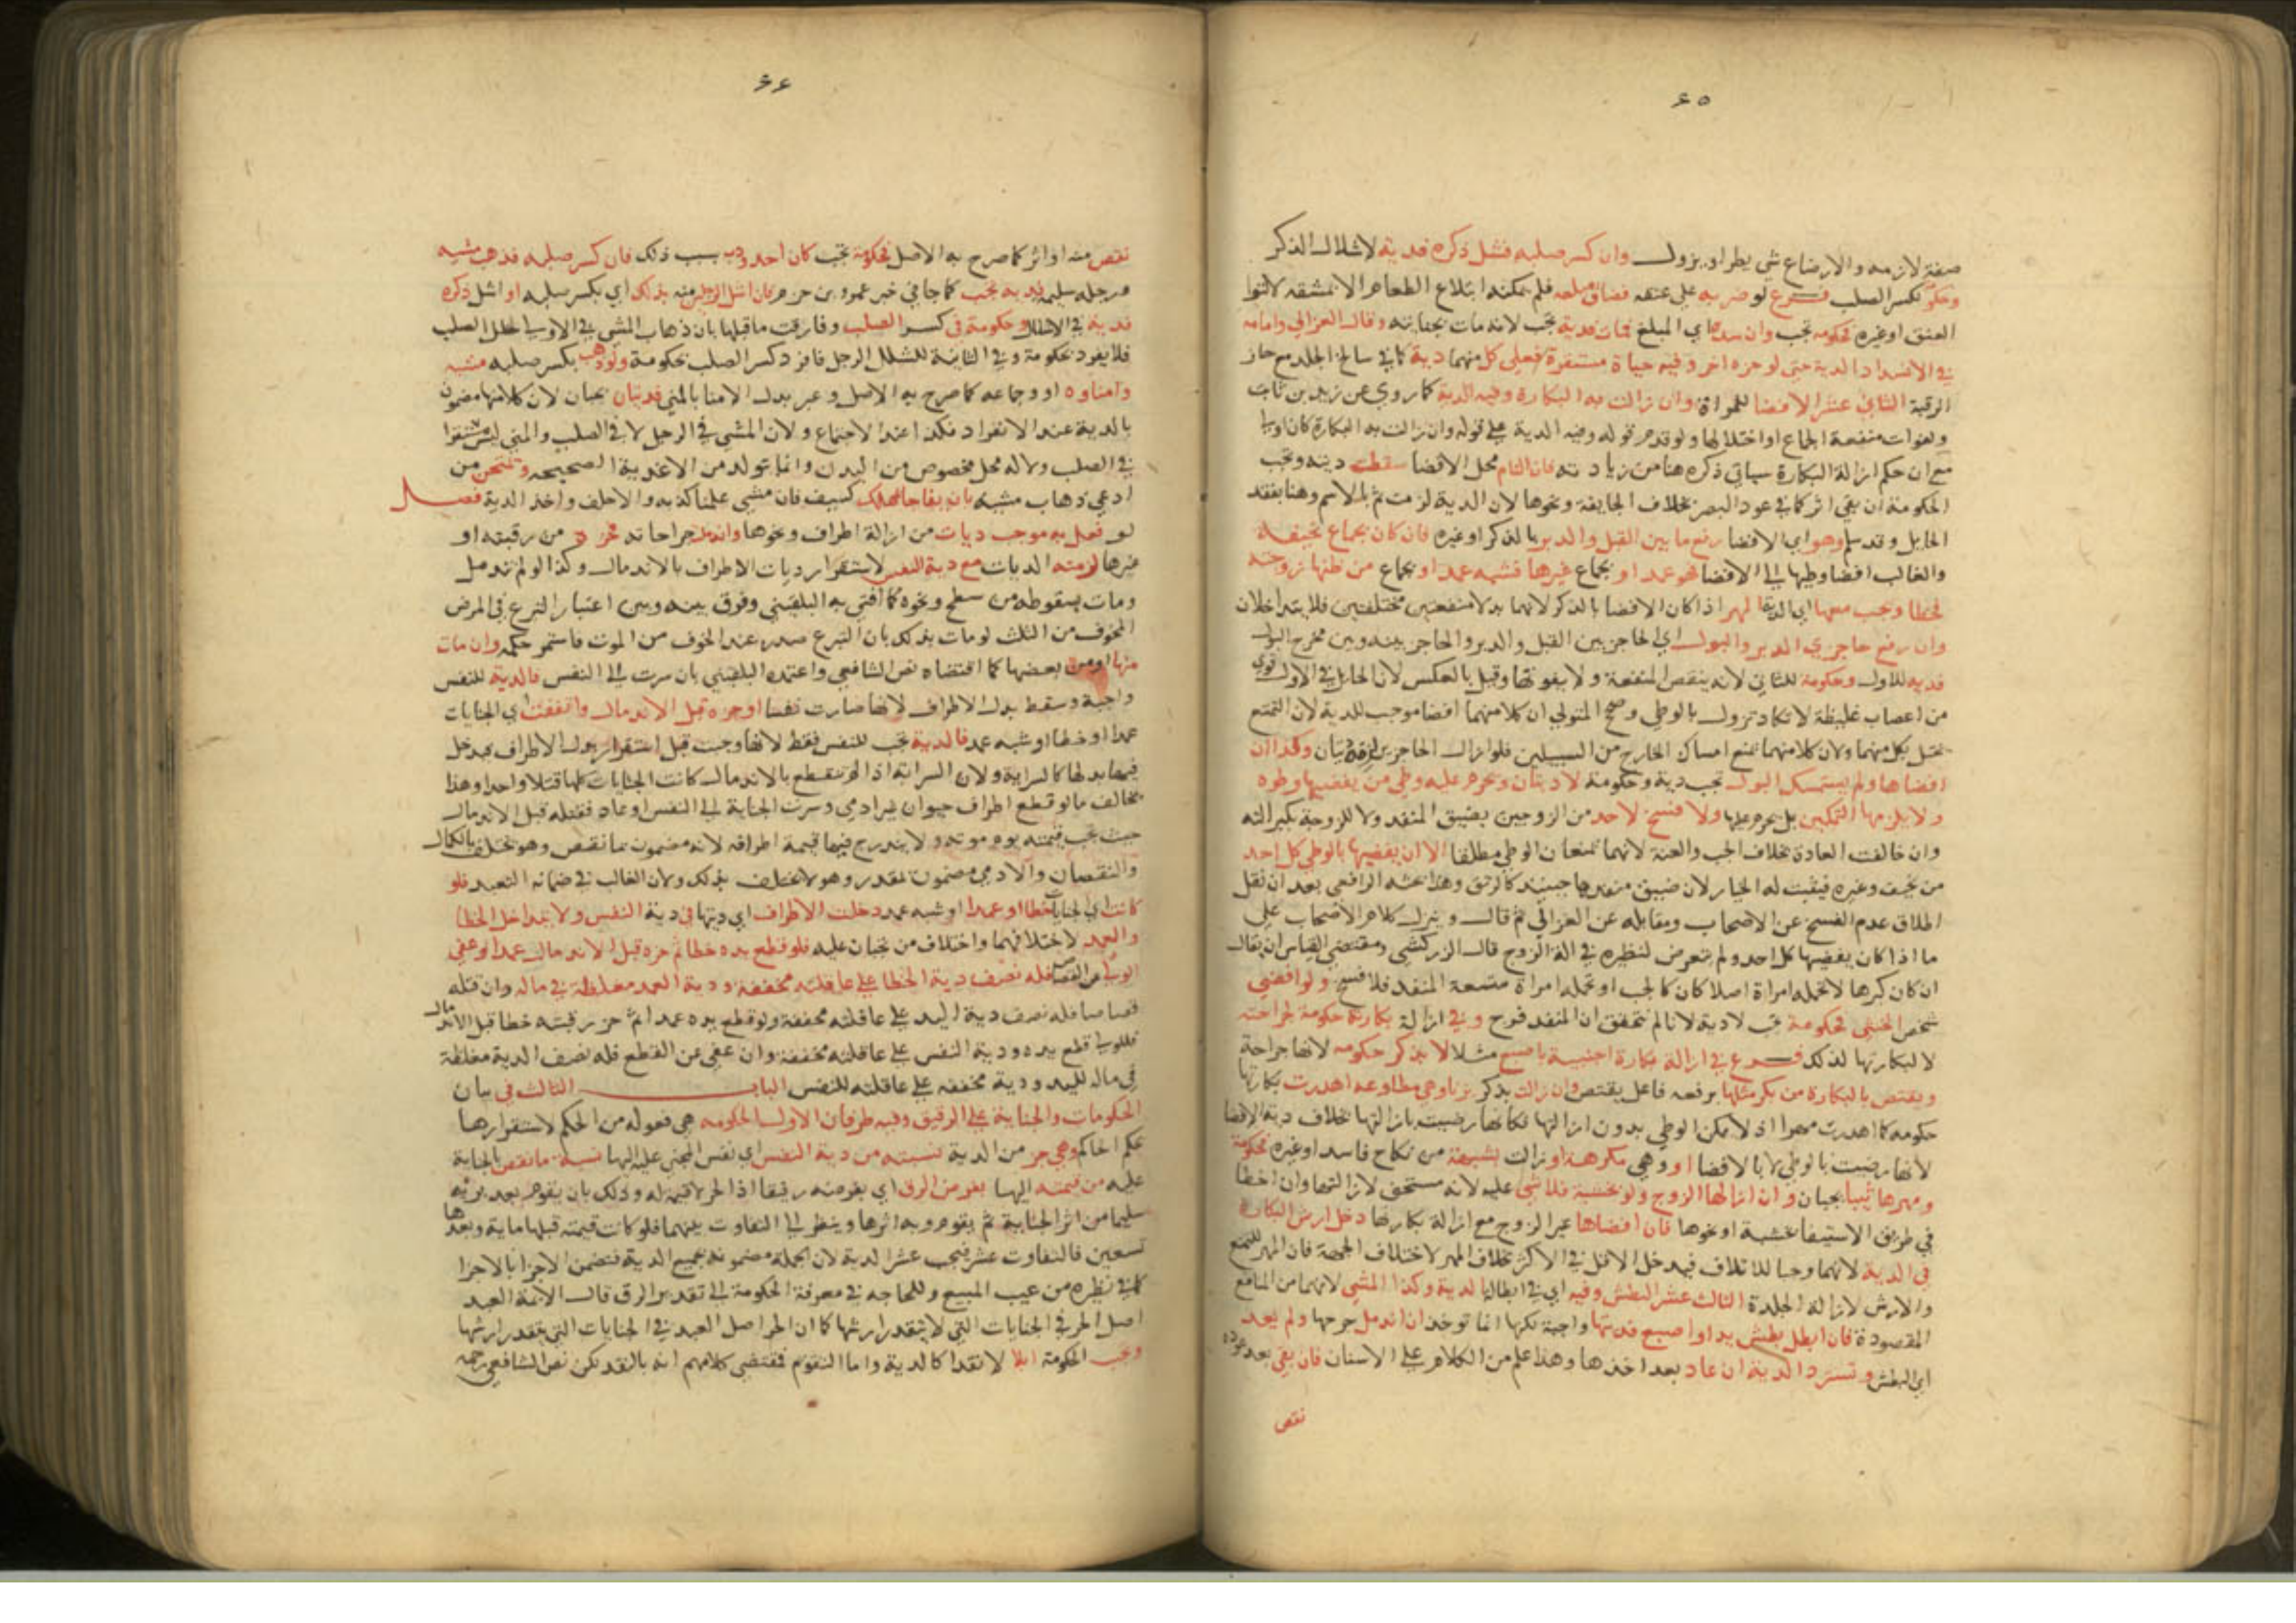 ٤٥
صفة لازمة والارضاع شي يطرا ويزول وان كسر صلبه فشل ذكره فدية لاشلال الذكر
وحكومة لكسر الصلب فرع لو ضربه على عنقه فضاق مبلعه فلم يمكنه ابتلاع الطعام الا بمشقة لالتوا
العنق او غيره فحكومة تجب وان سده اي المبلع فمات فدية تجب لانه مات بجنايته وقال الغزالي وامامه
في الانسداد الدية حتى لو حزه اخر وفيه حياة مستقرة فعلى كل منهما دية كما في سالخ الجلد مع حاز
الرقبة الثاني عشر الافضا للمراة وان زالت به البكارة وفيه الدية كما روي عن زيد بن ثابت
ولفوات منفعة الجماع او اختلالها ولو قدم قوله وفيه الدية على قوله وان زالت به البكارة كان اولى
مع ان حكم ازالة البكارة سياتي ذكره هنا من زيادته فان التام محل الافضا سقطت ديته وتجب
الحكومة ان بقي اثر كما في عود البصر بخلاف الجايفة ونحوها لان الدية لزمت ثم بالاسم وهنا بفقد
الحايل وقد سلم وهو اي الافضا رفع ما بين القبل والدبر بالذكر او غيره فان كان بجماع نحيفة
والغالب افضا وطيها الى الافضا فهو عمد او بجماع غيرها فشبه عمد او بجماع من ظنها زوجته
فخطا وتجب معها اي الدية المهر اذا كان الافضا بالذكر لانهما بدلا منفعتين مختلفتين فلا يتداخلان
وان رفع حاجزي الدبر والبول اي الحاجز بين القبل والدبر والحاجز بينه وبين مخرج البول
فدية للاول وحكومة للثاني لانه ينقص المنفعة ولا يفوتها وقيل بالعكس لان الحايل في الاول قوي
من اعصاب غليظة لا تكاد تزول بالوطي وصحح المتولي ان كلا منهما افضا موجب للدية لان التمتع
يختل بكل منهما ولان كلا منهما يمنع امساك الخارج من السبيلين فلو ازال الحاجزين لزمه ديتان وكذا ان
افضاها ولم يستمسك البول تجب دية وحكومة لا ديتان ويحرم عليه وطي من يفضيها وطوه
ولا يلزمها التمكين بل يحرم عليها ولا فسخ لاحد من الزوجين بضيق المنفد ولا للزوجة بكبر الته
وان خالفت العادة بخلاف الجب والعنة لانهما يمنعان الوطي مطلقا الا ان يفضيها بالوطي كل احد
من نحيف وغيره فيثبت له الخيار لان ضيق منفدها حينيذ كالرتق وهذا بحثه الرافعي بعد ان نقل
اطلاق عدم الفسخ عن الاصحاب ومقابله عن الغزالي ثم قال وينزل كلام الاصحاب على
ما اذا كان يفضيها كل احد ولم يتعرض لنظيره في الة الزوج قال الزركشي ومقتضى القياس ان يقال
ان كان كبرها لا تحمله امراة اصلا كان كالجب او تحمله امراة متسعة المنفد فلا فسخ ولو افضي
شخص الخنثى فحكومة تجب لا دية لانا لم نتحقق ان المنفد فرج وفي ازالة بكارته حكومة لجراحته
لا لبكارتها لذلك فرع في ازالة بكارة اجنبية باصبع مثلا لا بذكر حكومة لانها جراحة
ويقتص بالبكارة من بكر مثلها برفعه فاعل يقتص وان زالت بذكر بزنا وهي مطاوعة اهدرت بكارتها
حكومة كما اهدرت مهرا اذ لا يمكن الوطي بدون ازالتها فكانها رضيت بازالتها بخلاف دية الافضا
لانها رضيت بالوطي لا بالافضا او وهي مكرهة او زالت بشبهة من نكاح فاسد او غيره فحكومة
ومهرها ثيبا يجبان وان ازالها الزوج ولو بخشبة فلا شي عليه لانه مستحق لازالتها وان اخطا
في طريق الاستيفا بخشبة او نحوها فان افضاها غير الزوج مع ازالة بكارتها دخل ارش البكارة
في الدية لانهما وجبا للاتلاف فيدخل الاقل في الاكثر بخلاف المهر لاختلاف الجهة فان المهر للتمتع
والارش لازالة الجلدة الثالث عشر البطش وفيه اي في ابطاله الدية وكذا المشي لانهما من المنافع
المقصودة فان ابطل بطش يد او اصبع فديتها واجبة لكنها انما توخذ ان اندمل جرحها ولم يعد
اي البطش وتسترد الدية ان عاد بعد اخذها وهذا علم من الكلام على الاسنان فان بقي بعد عوده
نقص
٤٤
نقص منه او اثر كما صرح به الاصل فحكومة تجب كان احدودب بسبب ذلك فان كسر صلبه فذهب مشيه
ورجله سليمة فدية تجب كما جا في خبر عمرو بن حزم فان اشل الرجلين منه بذلك اي بكسر صلبه او اشل ذكره
فدية في الاشلال وحكومة في كسر الصلب وفارقت ما قبلها بان ذهاب المشي في الاولى لخلل الصلب
فلا يفرد بحكومة وفي الثانية للشلل الرجل فافرد كسر الصلب بحكومة ولو ذهب بكسر صلبه مشيه
وامناوه او وجماعه كما صرح به الاصل وعبر بدل الامنا بالمني فديتان تجبان لان كلا منهما مضمون
بالدية عند الانفراد فكذا عند الاجتماع ولان المشي في الرجل لا في الصلب والمني ليس مستقرا
في الصلب ولا له محل مخصوص من البدن وانما يتولد من الاغذية الصحيحة ويمتحن من
ادعى ذهاب مشيه بان يفاجا بمهلك كسيف فان مشى علمنا كذبه والا حلف واخذ الدية فصل
لو فعل به موجب ديات من ازالة اطراف ونحوها واندملت جراحاته فحز من رقبته او
غيرها لزمته الديات مع دية النفس لاستقرار ديات الاطراف بالاندمال وكذا لو لم تندمل
ومات بسقوطه من سطح ونحوه كما افتى به البلقيني وفرق بينه وبين اعتبار التبرع في المرض
المخوف من الثلث لو مات بذلك بان التبرع صدر عند الخوف من الموت فاستمر حكمه وان مات
منها او من بعضها كما اقتضاه نص الشافعي واعتمده البلقيني بان سرت الى النفس فالدية للنفس
واجبة وسقط بدل الاطراف لانها صارت نفسا او حزه قبل الاندمال واتفقت اي الجنايات
عمدا او خطا او شبه عمد فالدية تجب للنفس فقط لانها وجبت قبل استقرار بدل الاطراف فيدخل
فيها بدلها كالسراية ولان السراية اذا لم تنقطع بالاندمال كانت الجنايات كلها قتلا واحدا وهذا
يخالف ما لو قطع اطراف حيوان غير ادمي وسرت الجناية الى النفس او عاد فقتله قبل الاندمال
حيث تجب قيمته يوم موته ولا يندرج فيها قيمة اطرافه لانه مضمون بما نقص وهو يختلف بالكمال
والنقصان والادمي مضمون بمقدر وهو لا يختلف بذلك ولان الغالب في ضمانه التعبد فلو
كانت اي الجنايات خطا او عمدا او شبه عمد دخلت الاطراف اي ديتها في دية النفس ولا يتداخل الخطا
والعمد لاختلافهما واختلاف من تجبان عليه فلو قطع يده خطا ثم حزه قبل الاندمال عمدا او عفى
الولي عن القصاص فله نصف دية الخطا على عاقلته مخففة ودية العمد مغلظة في ماله وان قتله
قصاصا فله نصف دية اليد على عاقلته مخففة ولو قطع يده عمدا ثم حز رقبته خطا قبل الاندمال
فللولي قطع يده ودية النفس على عاقلته مخففة وان عفى عن القطع فله نصف الدية مغلظة
في ماله لليد ودية مخففة على عاقلته للنفس الباب الثالث في بيان
الحكومات والجناية على الرقيق وفيه طرفان الاول الحكومة هي فعولة من الحكم لاستقرارها
بحكم الحاكم وهي جز من الدية نسبته من دية النفس اي نفس المجني عليه اليها نسبة ما نقص بالجناية
عليه من قيمته اليها بفرض الرق اي بفرضه رقيقا اذ الحر لا قيمة له وذلك بان يقوم بعد برئه
سليما من اثر الجناية ثم يقوم وبه اثرها وينظر الى التفاوت بينهما فلو كانت قيمته قبلها ماية وبعدها
تسعين فالتفاوت عشر فيجب عشر الدية لان الجملة مضمونة بجميع الدية فتضمن الاجزا بالاجزا
كما في نظيره من عيب المبيع وللحاجة في معرفة الحكومة الى تقدير الرق قال الايمة العبد
اصل الحر في الجنايات التي لا يتقدر ارشها كما ان الحر اصل العبد في الجنايات التي يتقدر ارشها
وتجب الحكومة ابلا لا نقدا كالدية واما التقويم فمقتضى كلامهم انه بالنقد لكن نص الشافعي رحمه